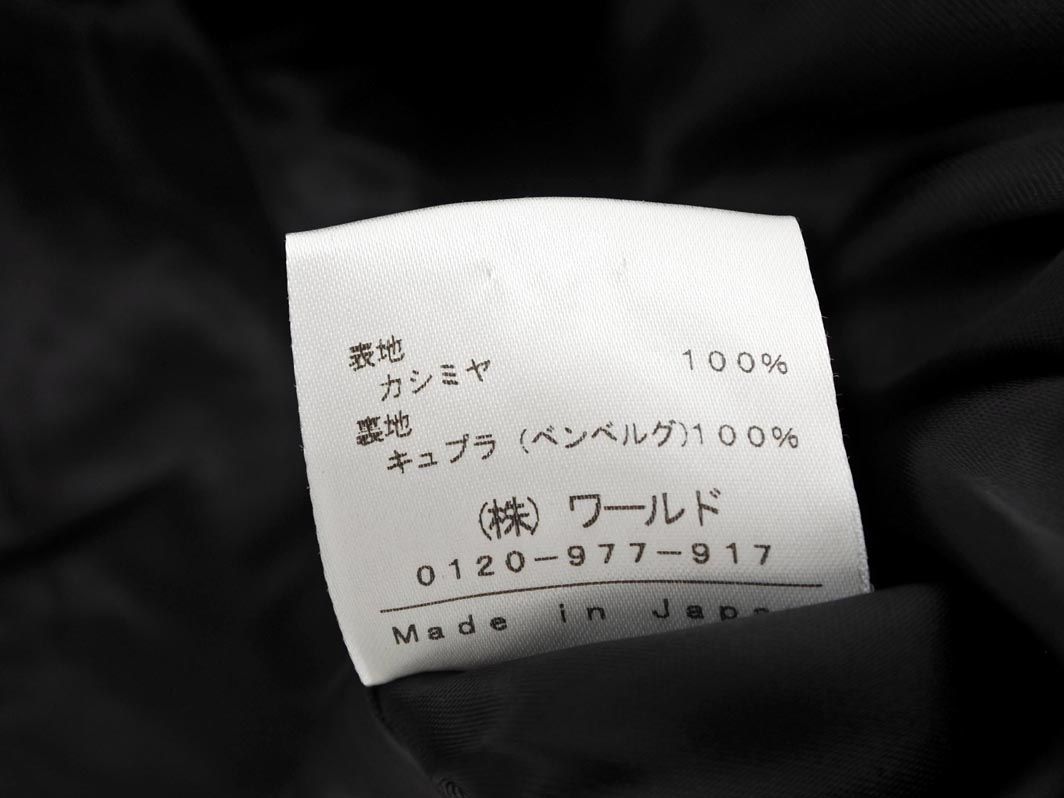 表地
カシミヤ 100%
裏地
キュプラ (ベンベルグ)100%
(株) ワールド
0120-977-917
Made in Japa